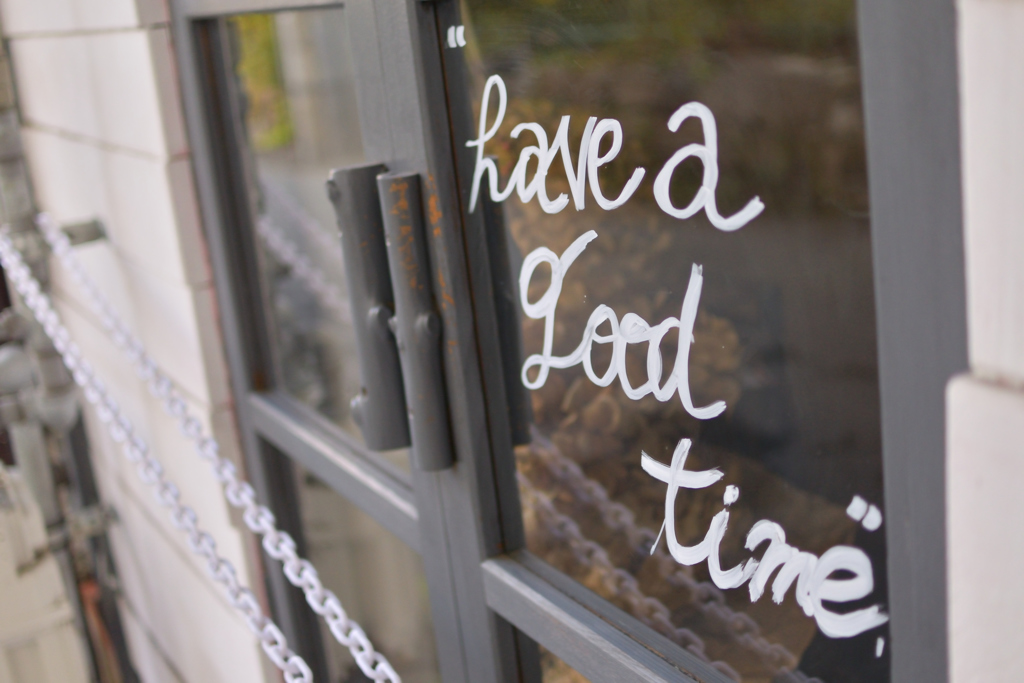 "have a
good
time"